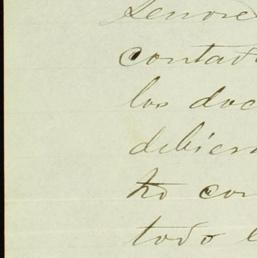 Senore
contad
los doc
debien
to con
todo e